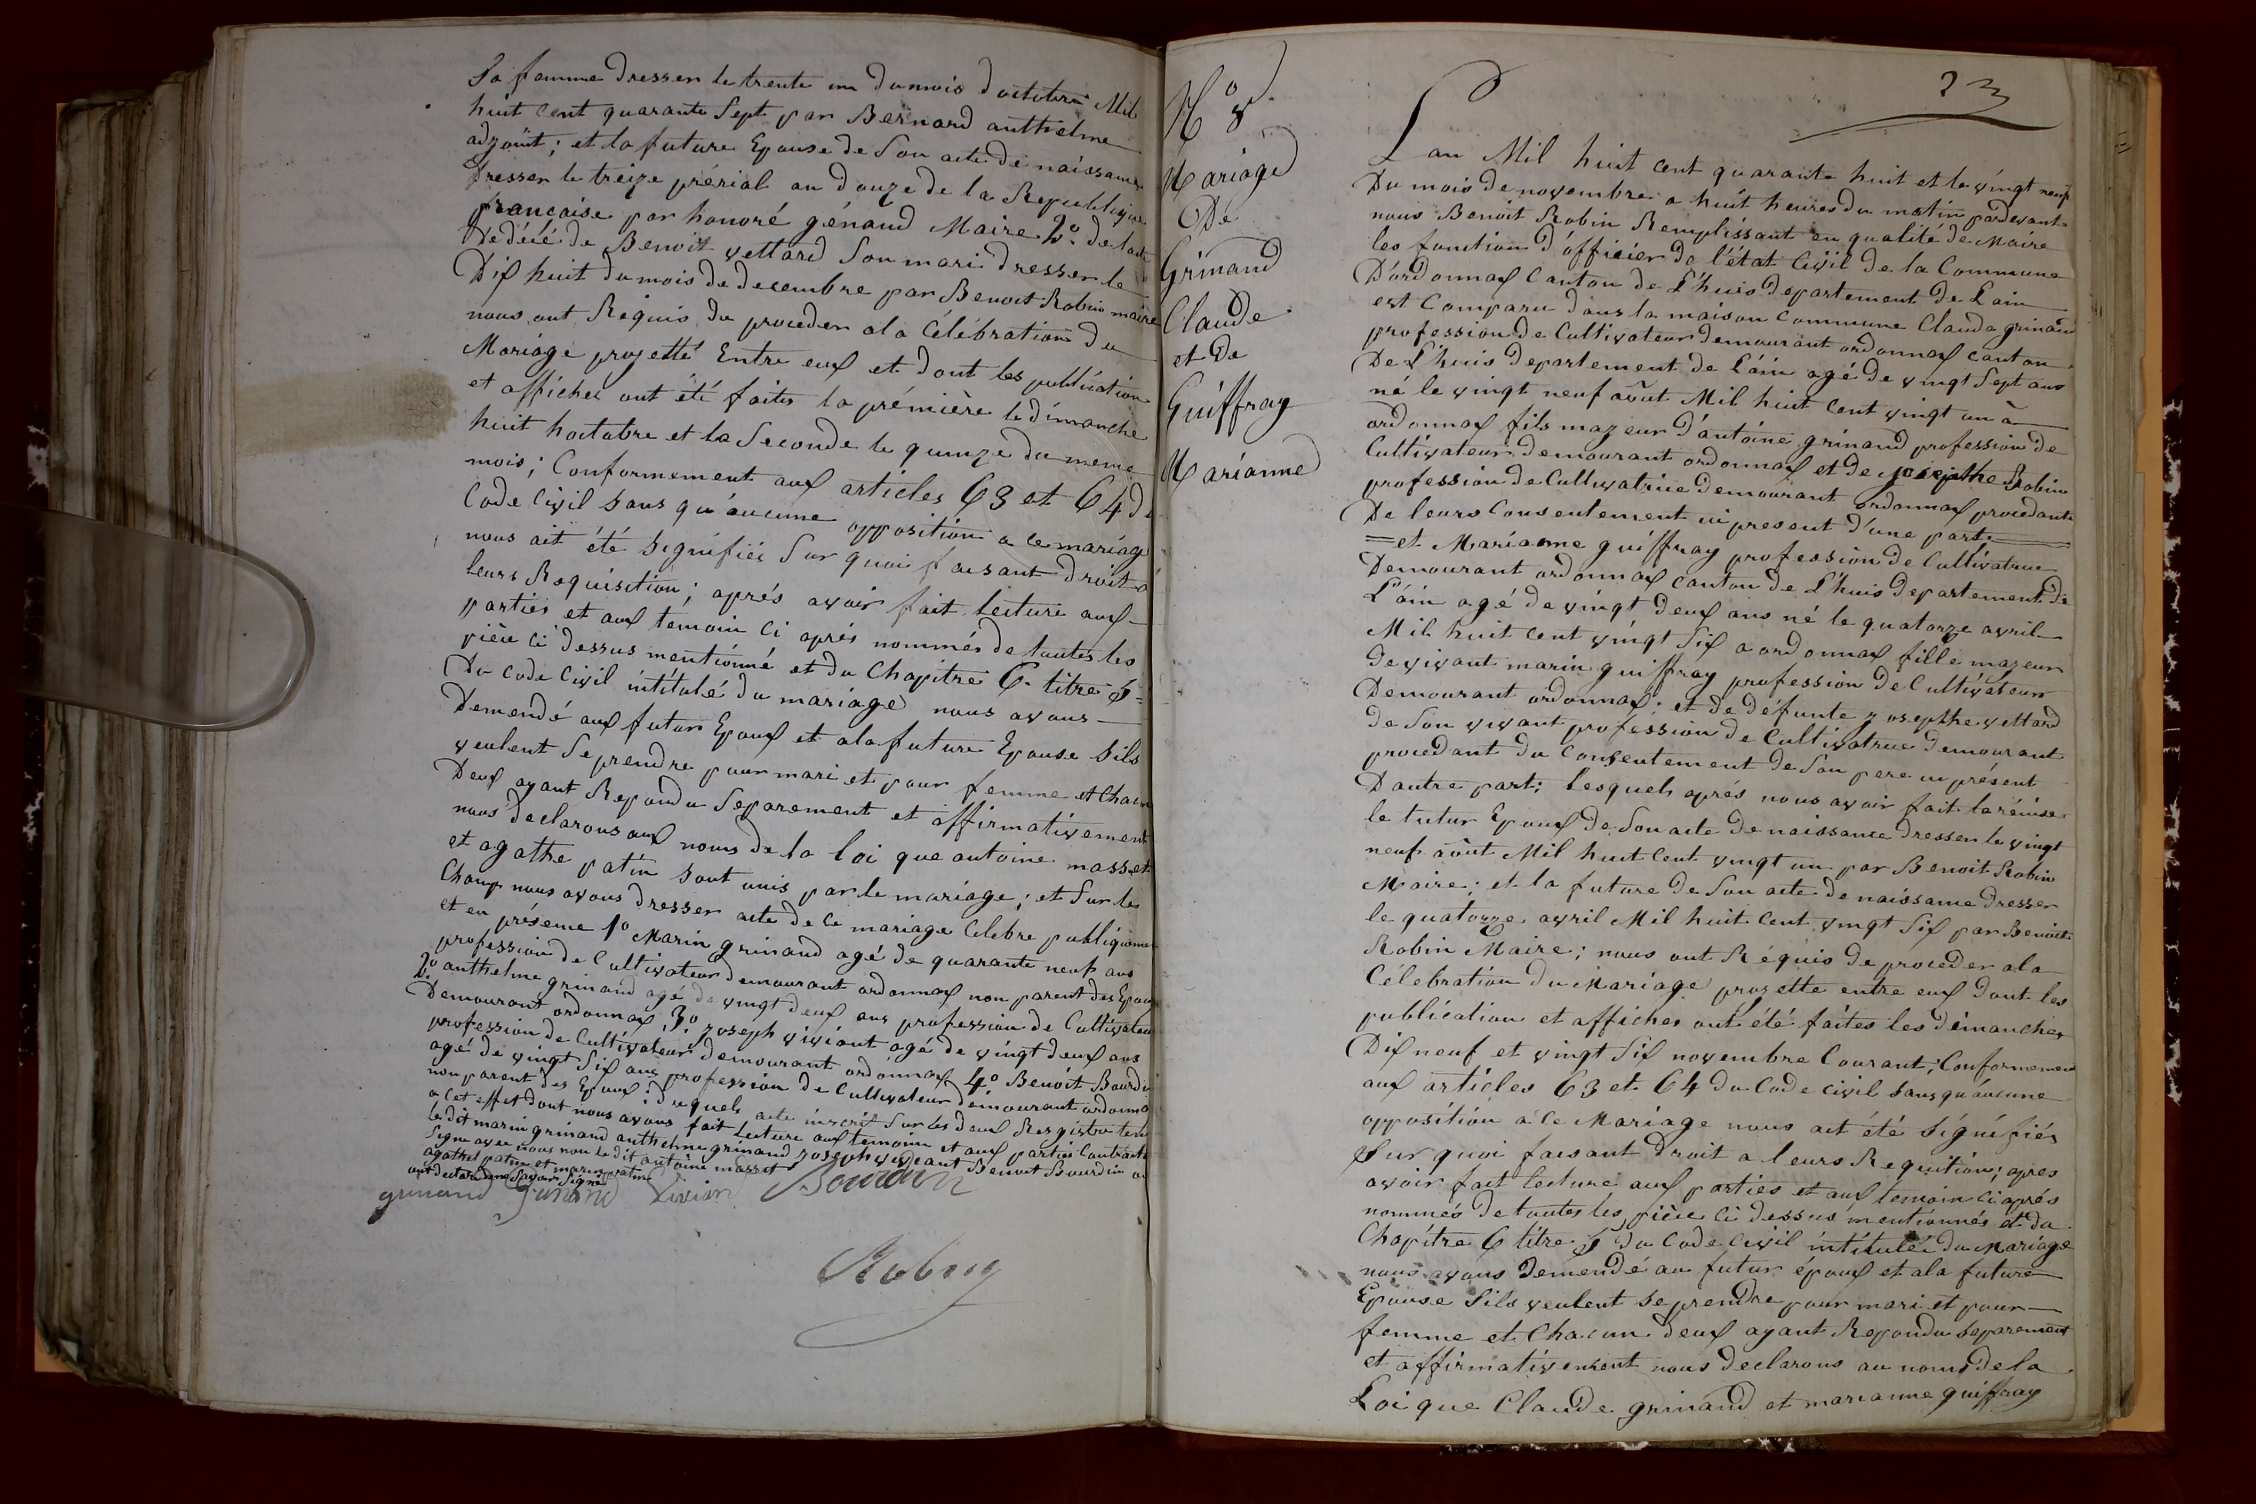 Sa femme dresser le trente un du mois doctobre Mil
huit cent quarante Sept par Bernard anthelme
adjoint; et la future Epouse de Son acte de naissance
dresser le treize prérial an douze de la Republique
française par honoré génaud Maire 2º. de lacte
De décé de Benoit vettard Son mari dresser le
Dix huit du mois de decembre par Benoit Robin maire
nous ont Réquis de proceder ala Célébration du
Mariage projetté Entre eux et dont les publication
et affiches ont été faites la prémière le dimanche
huit hoctobre et la Seconde le quinze du meme
mois; Conformement aux articles 63 et 64 du
Code Civil sans qu'aucune opposition a ce mariage
nous ait été Signifiés Sur quoi faisant droit a
leurs Requisition; aprés avoir fait lecture aux
parties et aux temoin ci aprés nommés de toutes les
pièce ci dessus mentionné et du Chapitre 6 titre 5
Du Code Civil intitulé du mariage nous avons
Demendé aux futur Epoux et ala future Epouse Sils
veulent Se prendre pour mari et pour femme et Chacun
Deux ayant Repondu Séparement et affirmativement
nous declarons aux noms de la loi que antoine masset
et agathe patin sont unis par le mariage; et Sur le
Champ nous avons dresser acte de ce mariage Celebre publiquement
et en présence 1º Marin grinand agé de quarante neuf ans
profession de Cultivateur demourant ordonnax non parent des Epoux
2º anthelme grinand agé de vingt deux ans profession de Cultivateur
Demourant ordonnax; 3º joseph viviant agé de vingt deux ans
profession de Cultivateur demourant ordonnax 4º Benoit Bourdin
agé de vingt Six ans profession de Cultivateur demourant ordonnax
non parent des Epoux; duquels acte inscrit Sur les deux Resgistre tenu
a Cet effet dont nous avons fait lecture aux temoin et aux parties Contractante
ledit marin grinand anthelme grinand joseph viviant Benoit Bourdin on
Signé avec nous non le dit antoine masset
agathe patin et marin patin
ont declaré ne Savoir Signé
grinand grinand Vivian Bourdin
Robin
Nº 8.
Mariage
De
Grinand
Claude
et de
Guiffray
Marianne
23
Lan Mil huit cent quarante huit et le vingt neuf
Du mois de novembre a huit heures du matin pardevant
nous Benoit Robin Remplissant en qualité de Maire
les fonction d'officier de l'état Civil de la Commune
D'ordonnax Canton de L'huis departement de Lain
est Comparu dans la maison Commune Claude grinand
profession de Cultivateur demourant ordonnax canton
De L'huis departement de L'ain agé de vingt Sept ans
né le vingt neuf août Mil huit cent vingt un à
ordonnax fils majeur d'antoine grinand profession de
Cultivateur demourant ordonnax et de josephe Robin
profession de Cultivatrice demourant ordonnax procedante
De leurs Consentement ici present d'une part
=et Marianne guiffray profession de Cultivatrice
Demourant ordonnax canton de L'huis departement de
L'ain agé de vingt deux ans né le quatorze avril
Mil huit cent vingt Six a ordonnax fille majeur
de vivant marin guiffray profession de Cultivateur
Demourant ordonnax; et de défunte josephe vettard
de Son vivant profession de Cultivatrice demourant
procedant du Consentement de Son pere ici présent
D'autre part; Lesquels aprés nous avoir fait la rémise
le futur Epoux de Son acte de naissance dresser le vingt
neuf août Mil huit Cent vingt un par Benoit Robin
Maire; et la future de Son acte de naissance dresser
le quatorze avril Mil huit Cent vingt Six par Benoit
Robin Maire; nous ont Réquis de proceder ala
Célébration du Mariage projetté entre eux dont les
publication et affiches ont été faites les dimanches
Dix neuf et vingt Six novembre Courant; Conformement
aux articles 63 et 64 du Code civil Sans qu'aucune
opposition a ce Mariage nous ait été Signifiés
Sur quoi faisant droit a leurs Requitions; apres
avoir fait lecture aux parties et aux temoin ci aprés
nommés de toutes les pièce ci dessus mentionnés et du
Chapitre 6 titre 5 du Code Civil intitulé du Mariage
nous avons Demendé au futur époux et ala future
Epouse Sils veulent Se prendre pour mari et pour
femme et Chacun deux ayant Repondu Separement
et affirmativement nous declarons au noms de la
Loi que Claude grinand et marianne guiffray